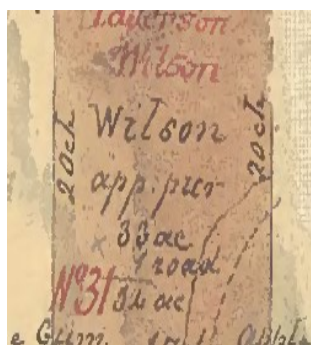 Wilson
Wilson
20ch
20ch
app. pur
33 ac
1 road
No 31
34 ac
Gum